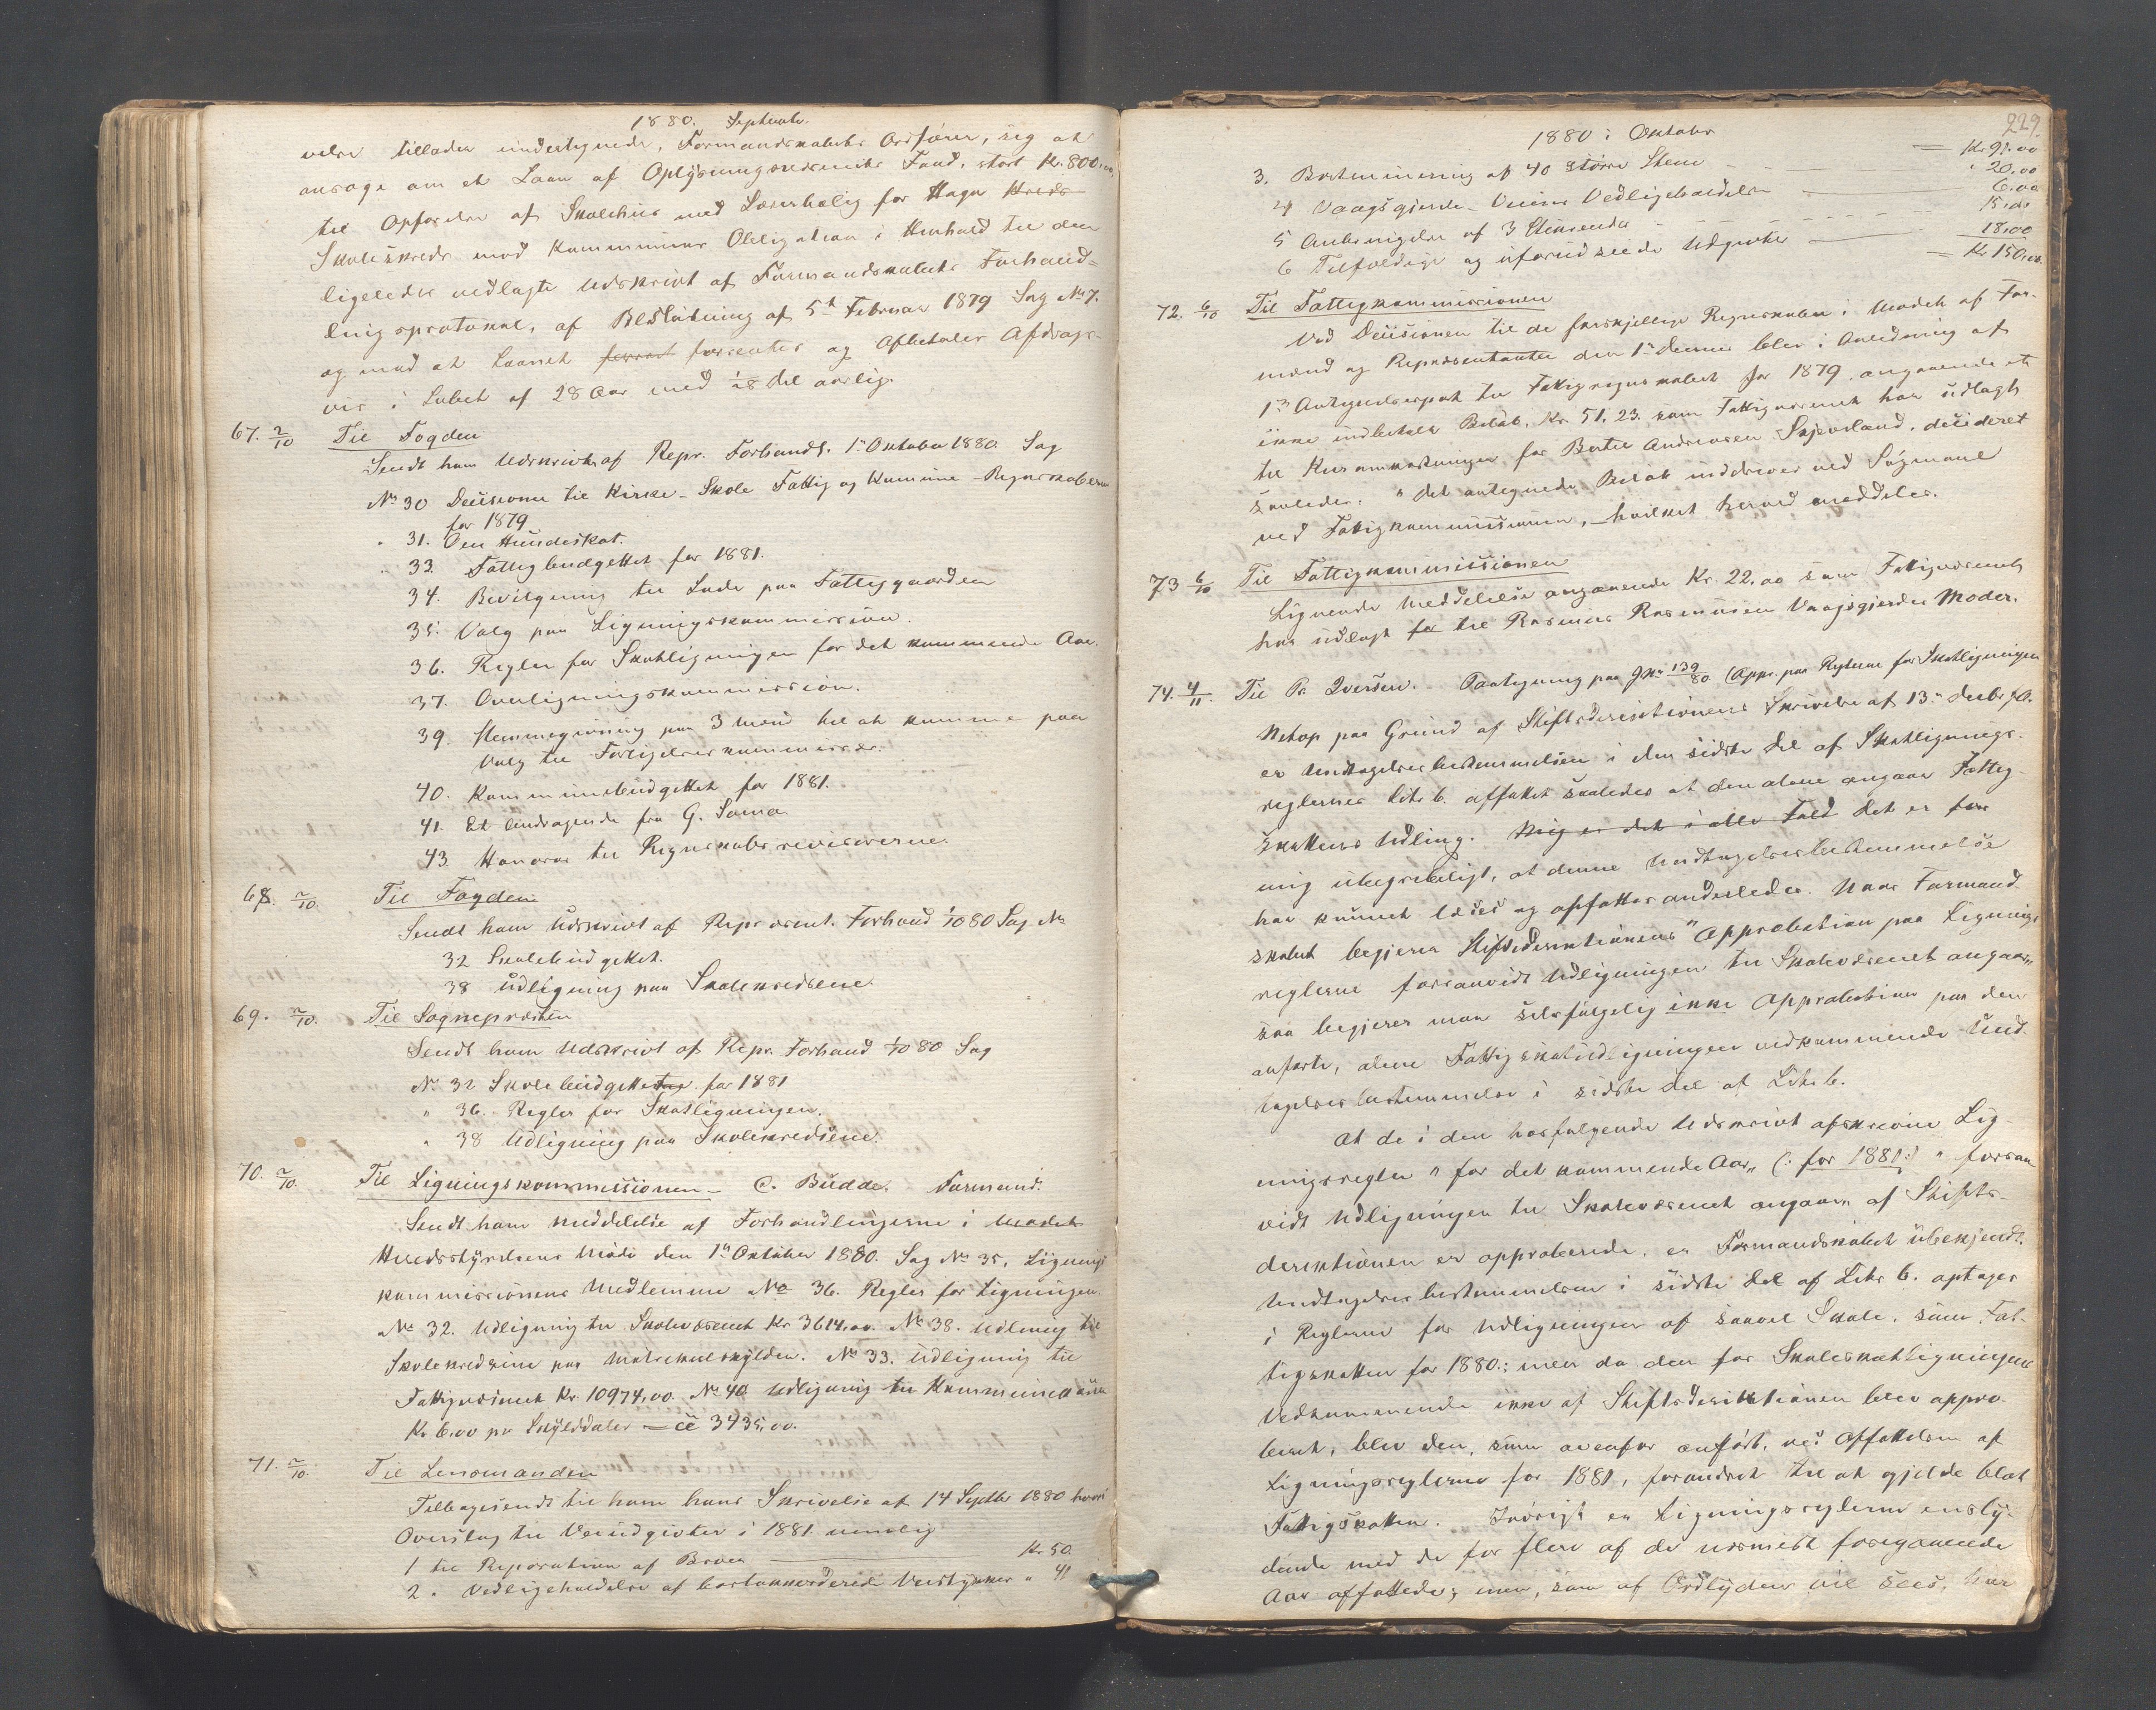 1880. Septembr.
velse tillader undertegnede, Formandskabets Ordfører, sig at
ansøge om et Laan af Oplysningsvæsenets Fond, stort Kr. 800,00,
til Opførelse af Skolehus med Lærerbolig for Haga Kreds
Skolekreds mod Kommunens Obligation i Henhold til den
ligeledes vedlagte Udskrivt af Formandskabets Forhand-
lingsprotokol, af Beslutning af 5te Februar 1879 Sag No 7.
og mod at Laanet forrent forrentes og afbetales Afdrags-
vis i Løbet af 28 Aar med 1/28 Del aarlig.
67. 2/10 Til Fogden
Sendt ham Udskrivt af Repr. Forhandl. 1te Oktober 1880. Sag
No 30 Decisione til Kirke- Skole Fattig og Kommune-Regnskaberne
for 1879
" 31. Om Hundeskat.
" 33. Fattigbudgettet for 1881.
34. Bevilgning til Lade paa Fattiggaarden
35. Valg paa Ligningskommission.
36. Regler for Skatligningen for det kommende Aar.
37. Overligningskommission.
39. Stemmegivning paa 3 Mænd til at komme paa
Valg til Forligelseskommissær.
40. Kommunebudgettet for 1881.
41. Et Andragende fra G. Soma
43. Honorar til Regnskabsrevisorerne.
68. 2/10. Til Fogden
Sendt ham Udskrivt af Repræsent. Forhand 1/10 80 Sag No
32 Skolebudgettet.
38 Udligning paa Skolekredsene.
69. 2/10. Til Sognepræsten
Sendt ham Udskrivt af Repr. Forhand 1/10 80 Sag
No 32 Skolebudgettet for 1881
" 36. Regler for Skatligningen.
" 38 Udligning paa Skolekredsene.
70. 2/10. Til Ligningskommissionen - C. Budde. Formand.
Sendt ham Meddelelse af Forhandlingerne i Mødet
Herredsstyrelsens Møde den 1te Oktober 1880. Sag No 35, Lignings
kommissionens Medlemme No 36. Regler for Ligningen
No 32. Udligning til Skolevæsenet Kr 3614,00. No 38. Udligning til
Skolekredsene paa Matrikulskylden. No 33. Udligning til
Fattigvæsenet Kr. 10974,00. No 40 Udligning til Kommunekassen
Kr 6,00 pr Skylddaler - 3435,00.
71. 2/10. Til Lensmanden
Tilbagesendt til ham hans Skrivelse af 14 Septbr 1880 hvori
Overslag til Veiudgivter i 1881 nemlig
1 til Reparation af Broer Kr 50.
2 " Vedligeholdelse af bortakkorderede Veistykker " 41
229
1880 i Oktober
3. Bortminering af 40 større Stene Kr 91.00
" 20.00
4 Vaagsgjerde-Veiens Vedligeholdelse 6.00
5 Anbringelse af 3 Stikrender 15.00
6 Tilfældige og uforudseede Udgivter 18,00
Kr 150,00.
72. 6/10 Til Fattigkommissionen
Ved Decisionen til de forskjellige Regnskaber i Mødet af For-
mænd og Repræsentanter den 1te dennes blev i Anledning af
1ste Antegnelsespost til Fattigregnskabet for 1879 angaaende et
ikke indbetalt Beløb, Kr. 51,23. som Fattigvæsenet har udlagt
til Kuromkostninger for Bertel Andreasen decideret
saaledes: "Det antegnede Beløb inddrives ved Søgmaal
ved Fattigkommissionen, hvilket herved meddeles.
73 6/10 Til Fattigkommissionen
Lignende Meddelelse angaaende Kr. 22.00 som Fattigvæsenet
har udlagt for til Rasmus Rasmusen Vaagsgjerdes Moder.
74. 4/11. Til P. Iversen. Paategning paa J No 139/80. (Appr. paa Reglerne for Skatligningen
Netop paa Grund af Stiftsdirektionens Skrivelse af 13de Decbr f.A.
er Undtagelsesbestemmelsen i den sidste Del af Skatlignings-
reglernes Litr b. affattet saaledes at den alene angaar Fattig-
skattens Udling. Mig er det i alle Fald Det er for
mig ubegribeligt, at denne Undtagelsesbestemmelse
har kunnet læses og opfattes anderledes. Naar Formand
skabet begjerer Stiftsdirektionens "Approbation paa Lignings
reglerne forsaavidt Udligningen til Skolevæsenet angaar",
saa begjerer man selvfølgelig ikke Approbation paa den
anførte, alene Fattigskatudligningen vedkommende Und-
tagelsesbestemmelse i sidste Del af Litr b.
At de i den hosfølgende Udskrivt afskrevne Lig-
ningsregler "for det kommende Aar" (: for 1881:) " forsaa
vidt Udligningen til Skolevæsenet angaar" af Stifts-
direktionen er approberede, er Formandskabet ubekjendt.
Undtagelsesbestemmelsen i sidste Del af Litr b. optages
i Reglerne for Udligningen af saavel Skole- som Fat-
tigskatten for 1880.; men da den for Skoleskatligningens
Vedkommende ikke af Stiftsdirektionen blev appro-
beret, blev den, som ovenfor anført, ved Affattelsen af
Ligningsreglerne for 1881, forandret til at gjelde blot
Fattigskatten. Iøvrigt er Ligningsreglerne enslý-
dende med de for flere af de nærmest foregaaende
Aar affattede; men, som af Ordlyden vil sees, har